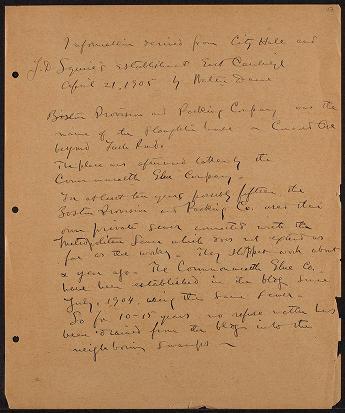 Information derived from City Hall and
J. D. Squire's establishment East Cambridge
April 21, 1905 by Walter Deane
Boston Provision and Packing Company was the
name of the slaughter house on Concord Ave
beyond Fresh Pond.
The place was afterward taken by the
Commonwealth Glue Company.
For at least ten years, possibly fifteen, the
Boston Provision and Packing Co. used their
own private sewer connected with the
Metropolitan Sewer which does not extend as
far as the works. They stopped work about
a year ago. The Commonwealth Glue Co.
have been established in the bldgs since
July, 1904, using the same sewer.
So for 10-15 years no refuse matter has
been drained from the bldgs into the
neighboring swamps